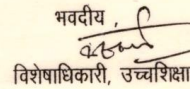 भवदीय,
विशेषाधिकारी, उच्चशिक्षा